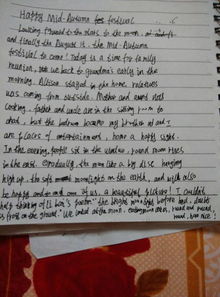 Happy Mid-Autumn fes festival
Looking forward to the stars to the moon, at
and finally the August is the Mid-Autumn
festival to come! Today is a time for family
reunion, we back to grandma's early in the
morning stayed in the home, relatives
was coming from outside. Mother and aunts start
cooking, father and uncle are in the sitting room to
chat, but the bedroom became my brother and I
are places of entertainment, home a happy
In the evening, full sit in the window, round moon rises
in the east. Gradually, the moon like a big disc hanging
high up, the soft moonlight on the earth, and with also
be happy and one of us, a beautiful picture! I couldn't
help thinking of Li bai's poem: "the bright moon light before bed, doubt
is frost on the ground." We looked at the moon, round and round,
moon,